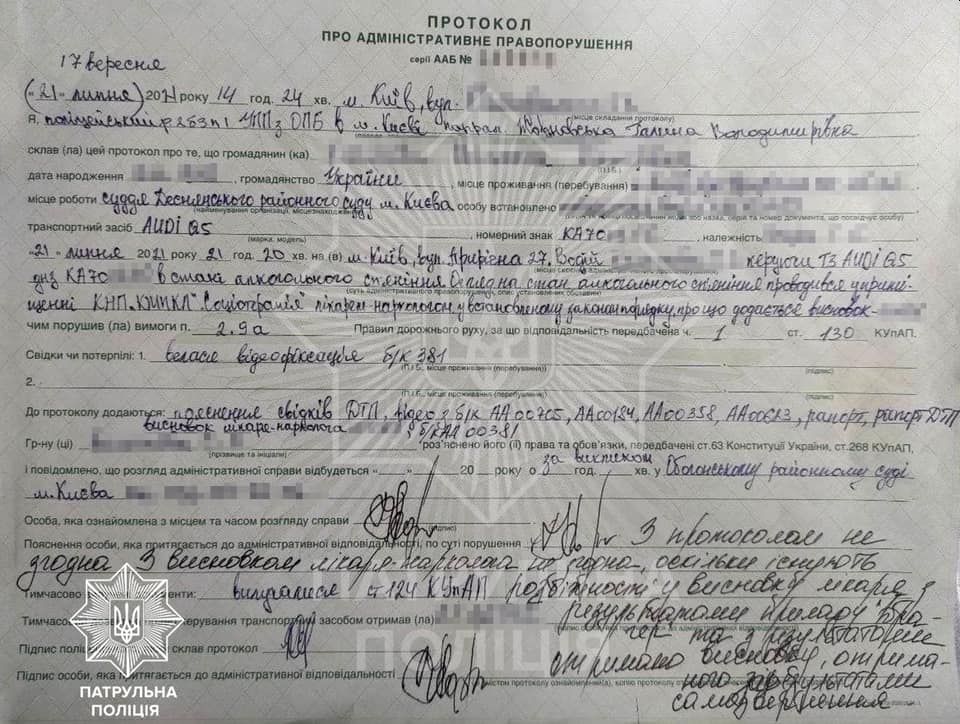 ПРОТОКОЛ
ПРО АДМІНІСТРАТИВНЕ ПРАВОПОРУШЕННЯ
серії ААБ №
17 вересня
(«21» липня) 2021 року 14 год. 24 хв. м. Київ, вул.
(місце складання протоколу)
Я, поліцейський УПП з ОПБ в м. Києві Галина Володимирівна
склав (ла) цей протокол про те, що громадянин (ка)
(П.І.Б.)
дата народження , громадянство України , місце проживання (перебування)
місце роботи суддя Деснянського районного суду м. Києва особу встановлено
транспортний засіб AUDI Q5 , номерний знак КА70 , належність
(марка, модель)
«21» липня 2021 року 21 год. 20 хв. на (в) м. Київ, вул. Прирічна 27, Водій керуючи ТЗ AUDI Q5
днз КА70 в стані алкогольного сп'яніння Огляд на стан алкогольного сп'яніння проводився у приміщенні
КНП. КМНКЛ "Соціотерапія" лікарем наркологом, у встановленому законом порядку, про що додається висновок
чим порушив (ла) вимоги п. 2.9а Правил дорожнього руху, за що відповідальність передбачена ч. 1 ст. 130 КУпАП.
Свідки чи потерпілі: 1. власне відеофіксація б/к 381
(П.І.Б., місце проживання (перебування)) (підпис)
2.
(П.І.Б., місце проживання (перебування)) (підпис)
До протоколу додаються: пояснення свідків ДТП, відео з б/к АА00765, АА00184, АА00358, АА00613, рапорт, рапорт ДТП
висновок лікаря-нарколога з б/к АА 00381
Гр-ну (ці) роз'яснено його (її) права та обов'язки, передбачені ст.63 Конституції України, ст.268 КУпАП,
(прізвище та ініціали)
і повідомлено, що розгляд адміністративної справи відбудеться «» 20 року о за викликом год. хв. у Оболонському районному суді
м. Києва
Особа, яка ознайомлена з місцем та часом розгляду справи
(підпис)
Пояснення особи, яка притягається до адміністративної відповідальності, по суті порушення З протоколом не
згодна З висновком лікаря-нарколога не згодна, оскільки існують
Тимчасово вилучалися ст 124 КУпАП розбіжності у висновку лікаря з
результатами приладу "Драгер"
Тимчасове керування транспортним засобом отримав (ла)
та з результатами
Підпис поліцейського, який склав протокол
отримано висновку, отриманого
Підпис особи, яка притягається до адміністративної відповідальності
за результатами
самозвернення
ПАТРУЛЬНА
ПОЛІЦІЯ
ПОЛІЦІЯ